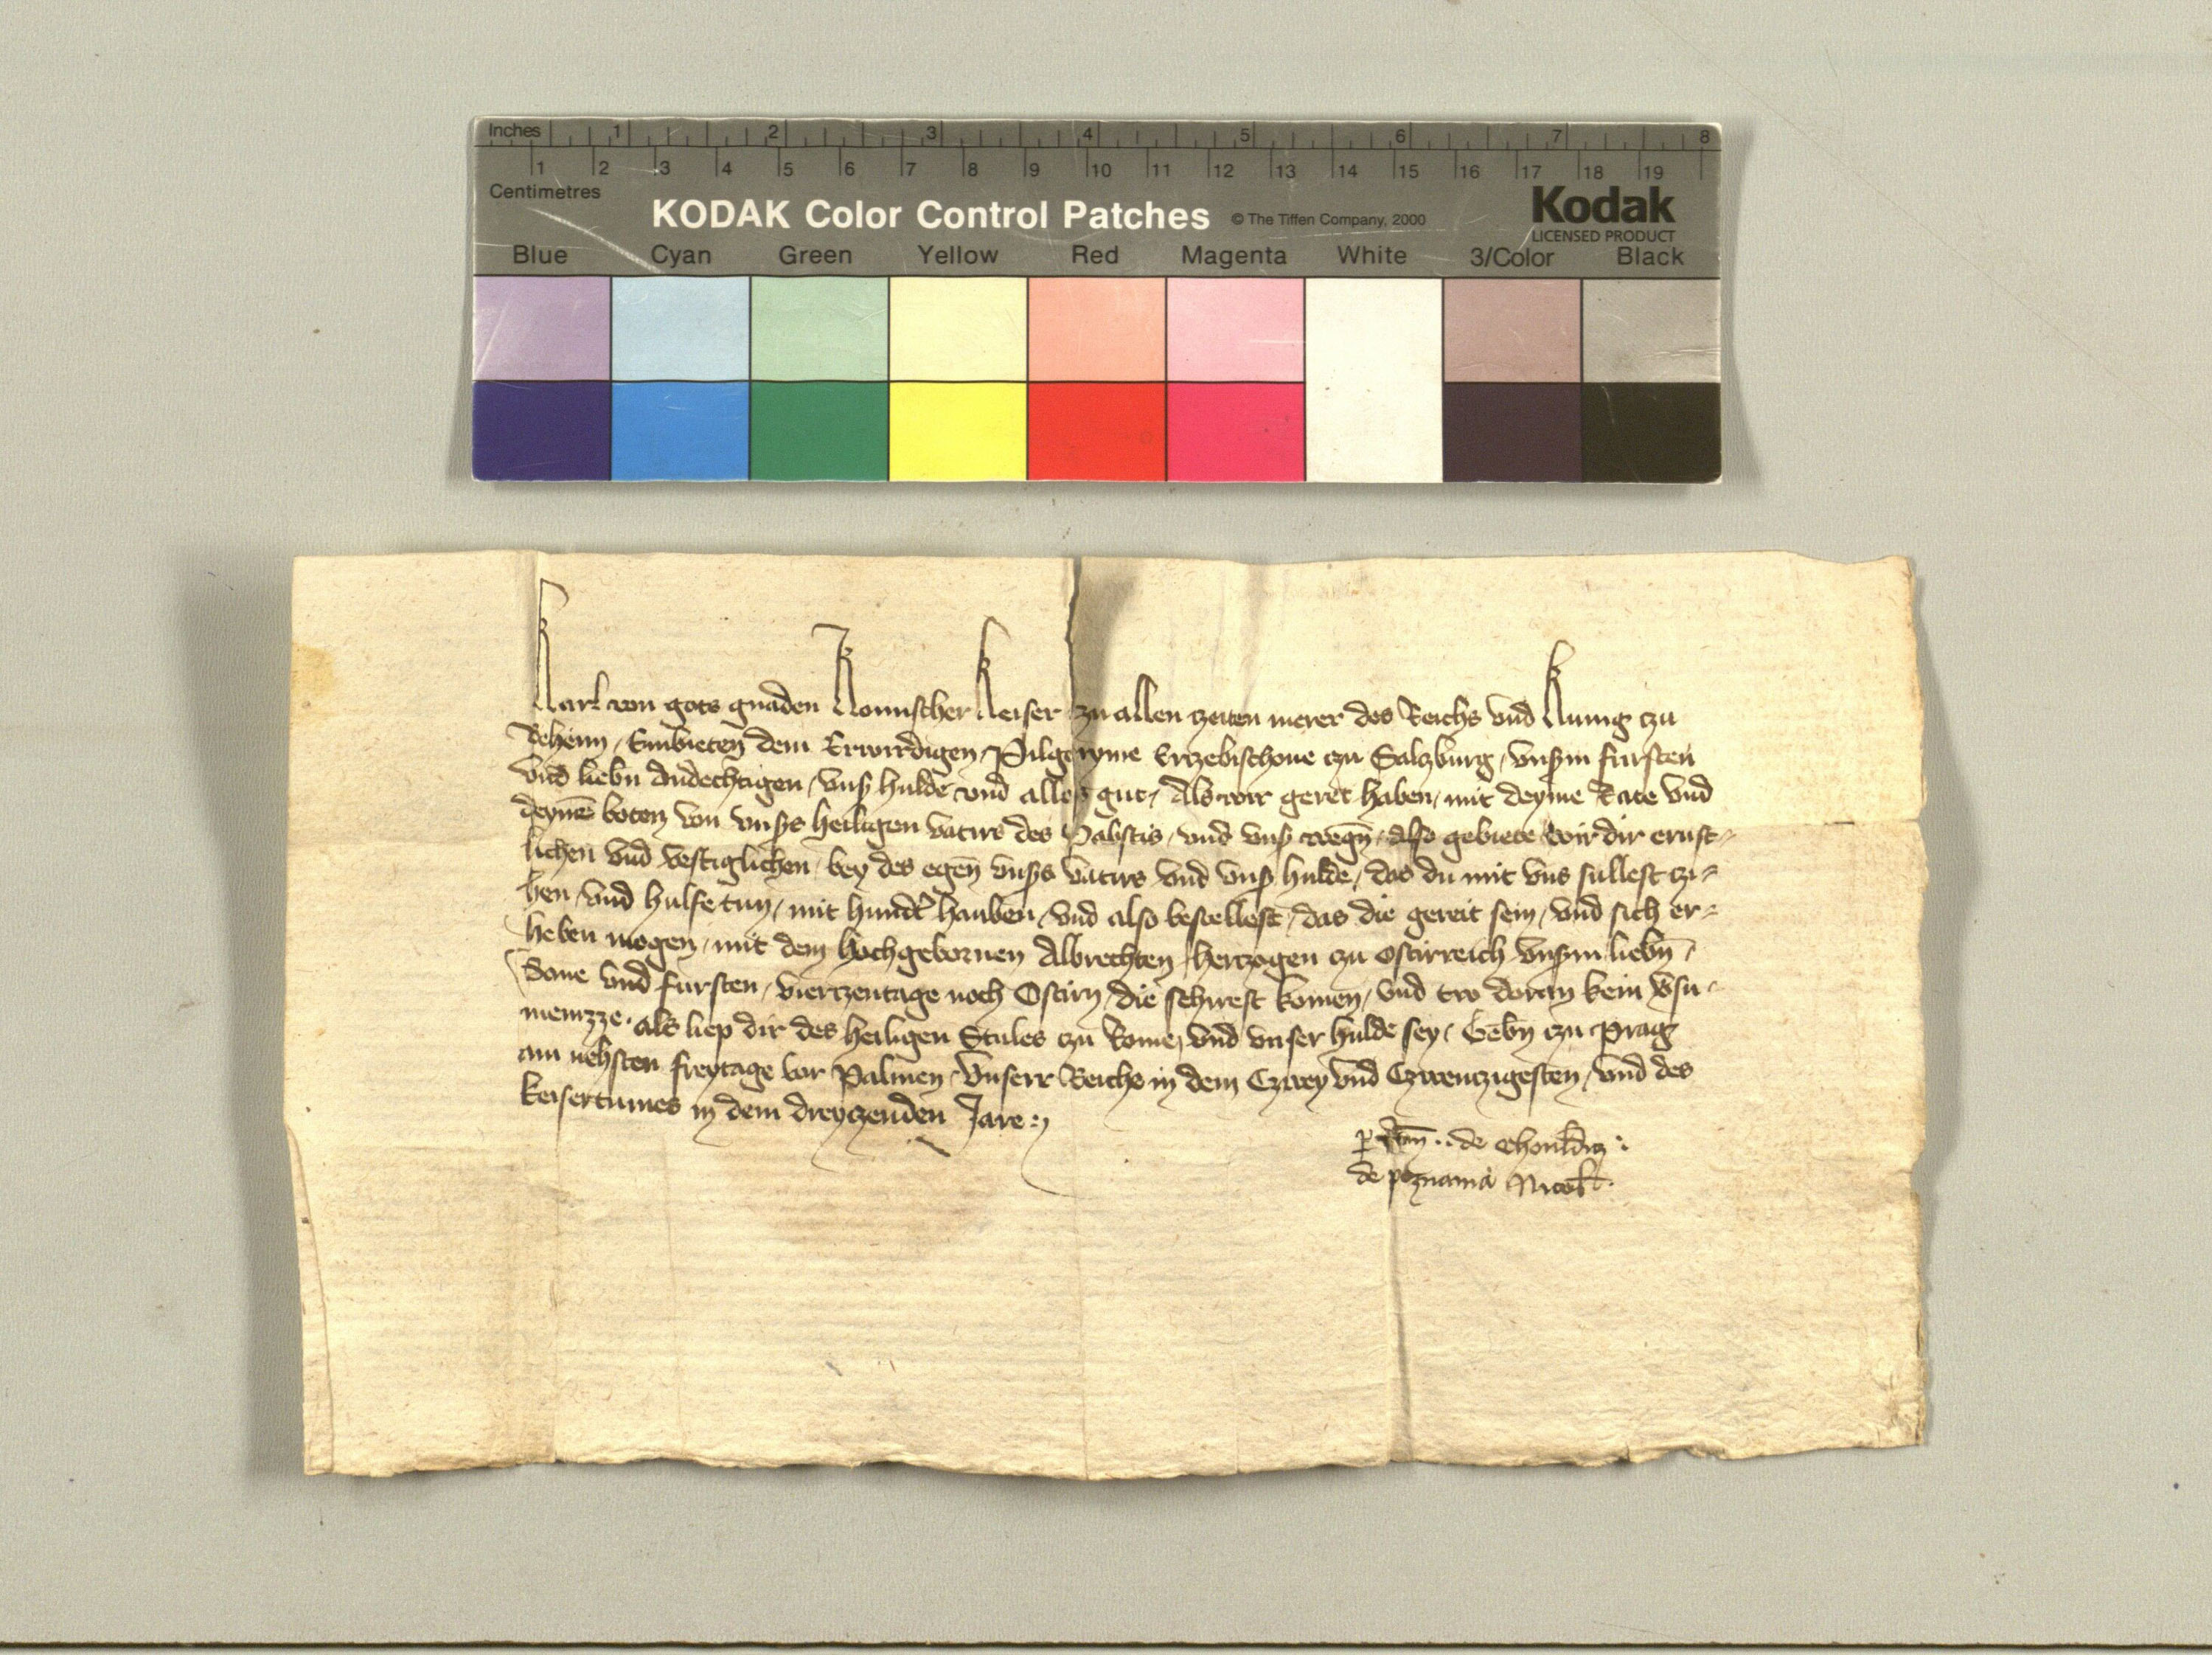 Inches 1 2 3 4 5 6 7 8
1 2 3 4 5 6 7 8 9 10 11 12 13 14 15 16 17 18 19
Centimetres
KODAK Color Control Patches © The Tiffen Company, 2000 Kodak
LICENSED PRODUCT
Blue Cyan Green Yellow Red Magenta White 3/Color Black
Karl von gots gnaden Romischer Keiser zu allen zeiten merer des Reichs vnd Kunig zu
Behem, Embieten dem Erwirdigen Pilgeryme Erczebischoue czu Salzburg, vnserm fursten
vnd liebn Andechtigen, vnser hulde vnd alles gut, Als wir geret haben, mit deyme Rate vnd
deyme boten von vnsers heiligen vatirs des Pabstis, vnd vnser wegn, also gebiete wir dir ernst-
lichen vnd vestiglichen, bey des egen vnsers vatirs vnd vnser hulde, das du mit vns sullest czi-
hen, vnd hulfe tun, mit hundert hauben, vnd also bestellest, das die gereit sein, vnd sich er-
heben mogen, mit dem hochgebornen Albrechten, herczogen czu Ostirreich vnserm liebn
Sone vnd fursten, vierczentage noch Ostirn, die schirest komen, vnd tw doran kein vorsu-
menizze, als liep dir des heiligen Stules czu Rome, vnd vnser hulde sey, Gebn czu Prag
am nehsten freytage vor Palmen, Vnserr Reiche in dem Czwey vnd Czwenczigesten, vnd des
keisertumes in dem dreyczenden Jare
de
de poznania Nicol.